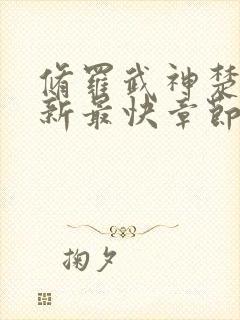 脩羅武神楚
新最快章節
掬夕